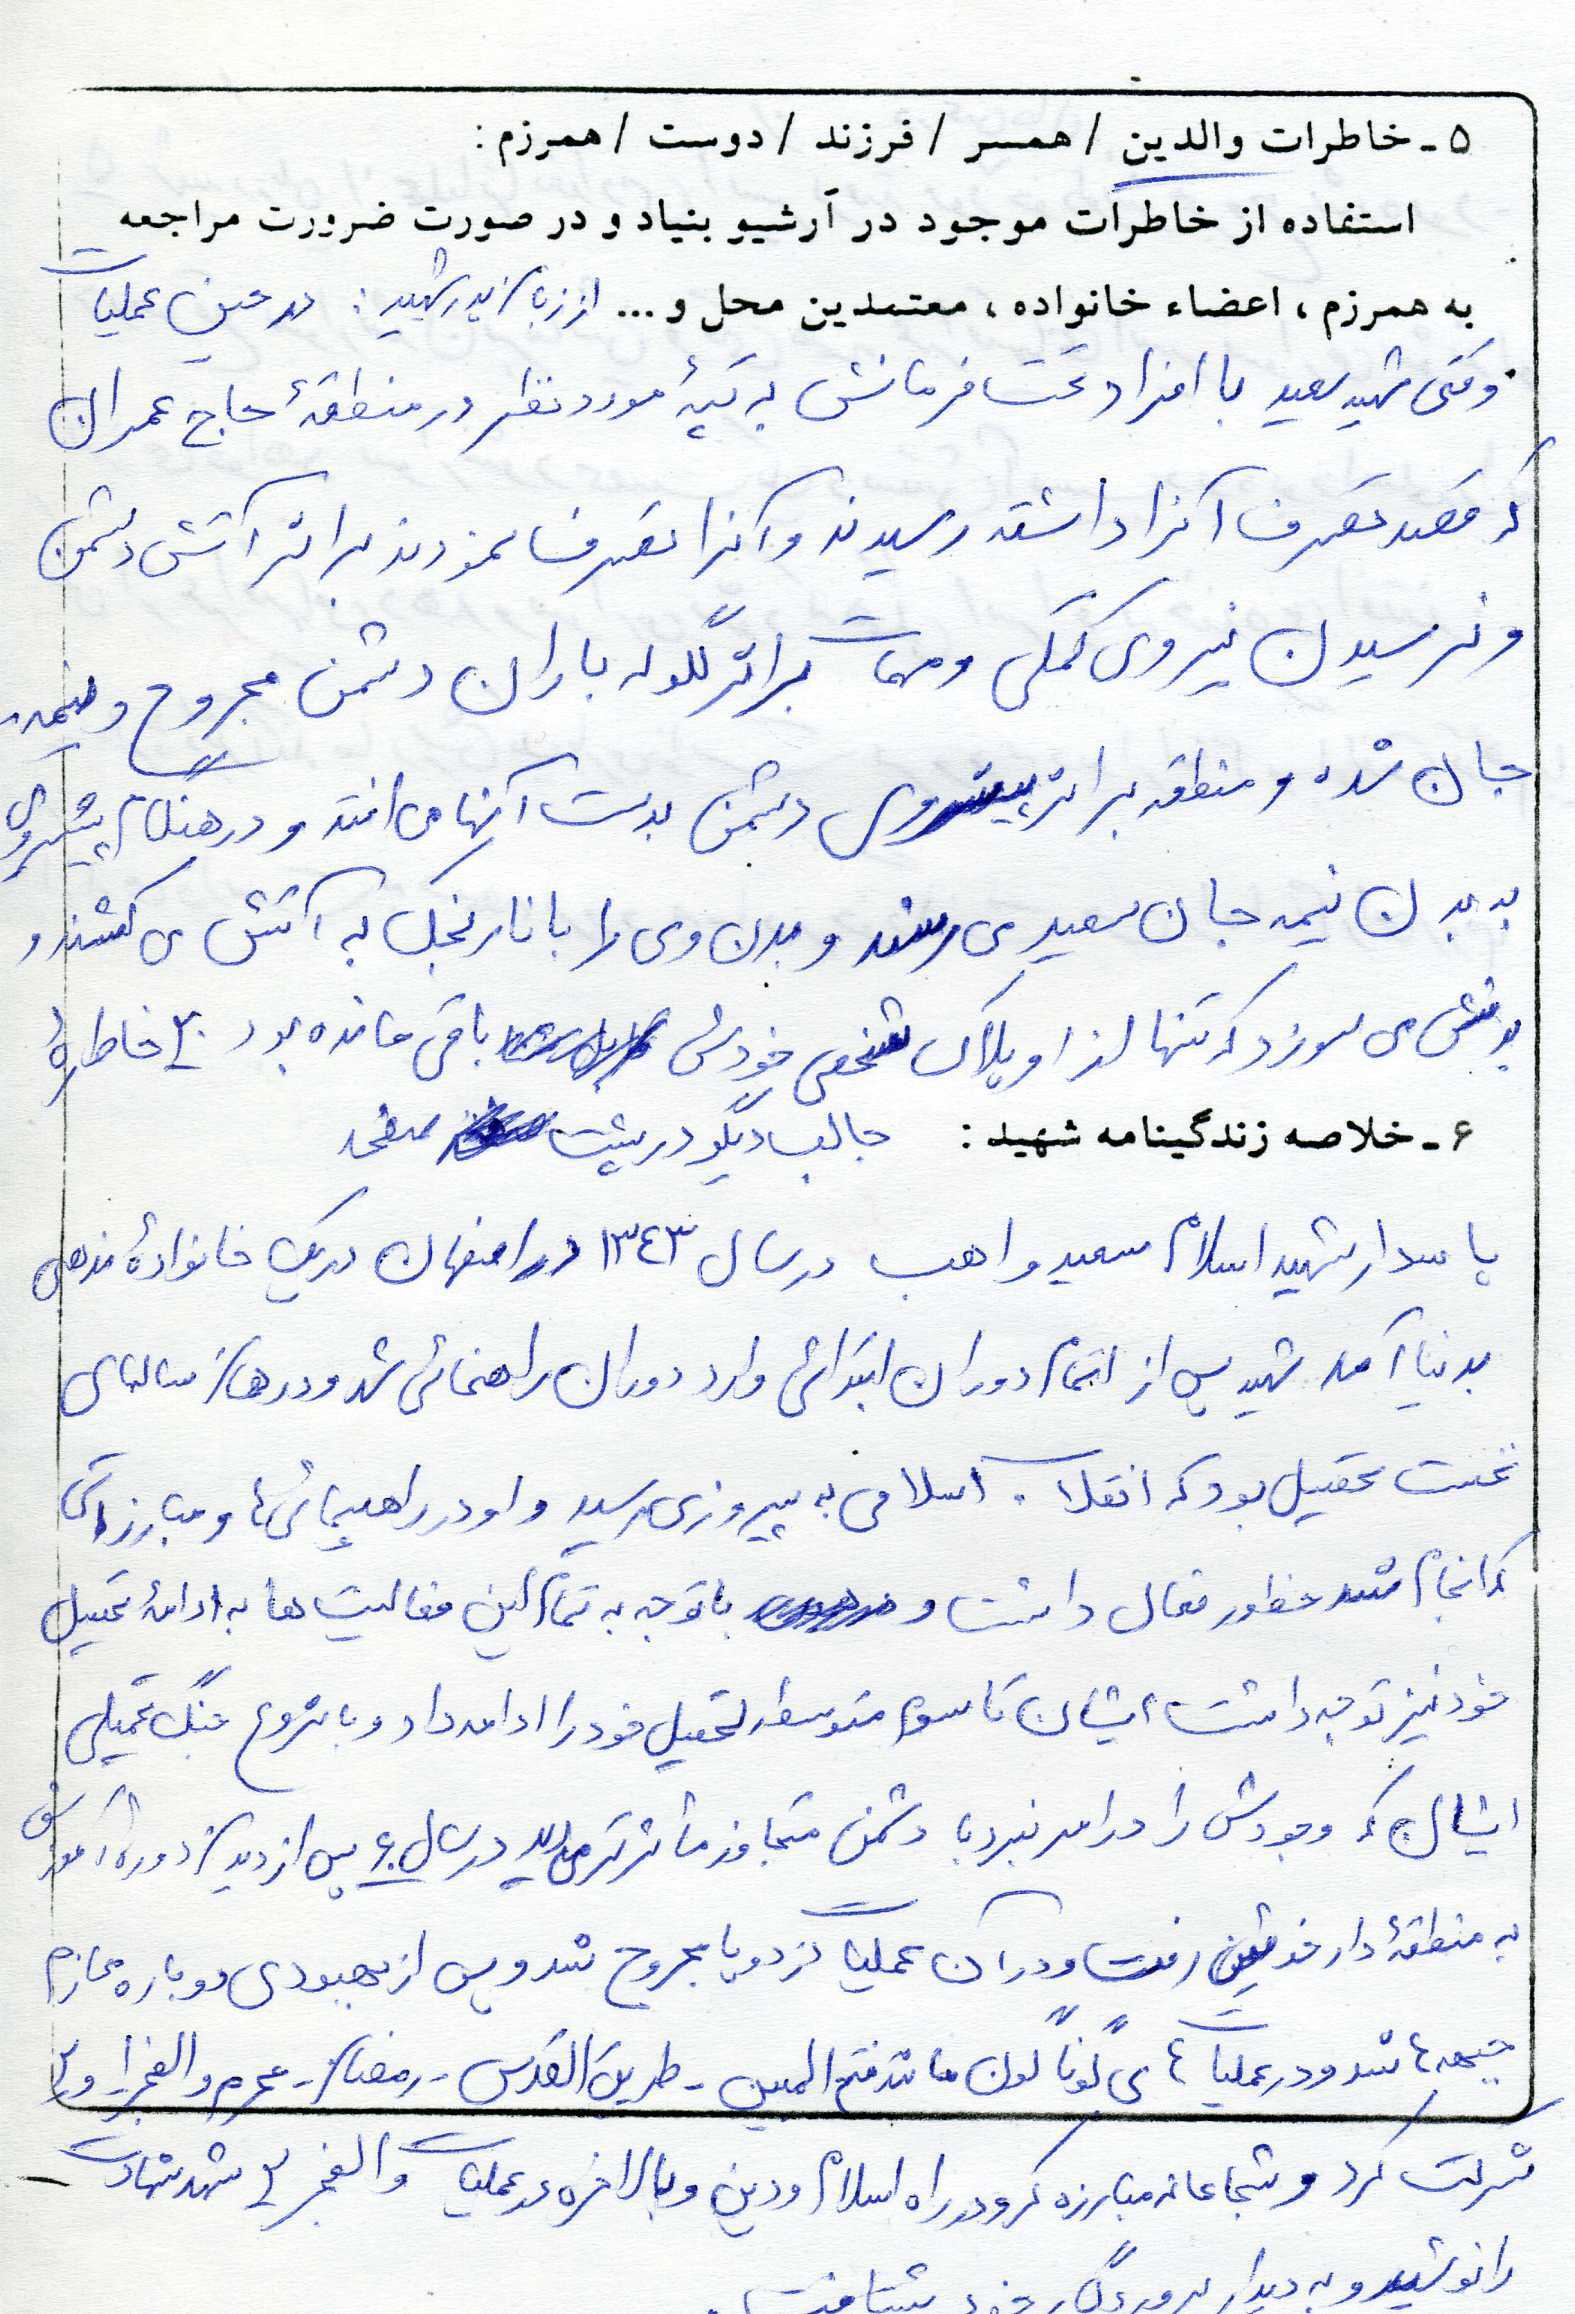 ۵ـ خاطرات والدین / همسر / فرزند / دوست / همرزم :
استفاده از خاطرات موجود در آرشیو بنیاد و در صورت ضرورت مراجعه
به همرزم ، اعضاء خانواده ، معتمدین محل و ... از زبان پدر شهید : در حین عملیات
وقتی شهید سعید با افراد تحت فرمانش به تپهٔ مورد نظر در منطقهٔ حاج عمران
که قصد تصرف آنرا داشته رسیدند و آنرا تصرف نمودند بر اثر آتش دشمن
و نرسیدن نیروی کمکی و مهمات بر اثر گلوله باران دشمن مجروح و نیمه
جان شده و منطقه بر اثر پیشروی دشمن بدست آنها می افتد و در هنگام پیشروی
به بدن نیمه جان سعید می رسند و بدن وی را با نارنجک به آتش می کشند و
بدنش می سوزد که تنها از او پلاک شخصی خودش باقی مانده بود خاطرهٔ
۶ـ خلاصه زندگینامه شهید : جالب دیگر در پشت صفحه
پاسدار شهید اسلام سعید واهب در سال ۱۳۴۳ در اصفهان در یک خانوادهٔ مذهبی
بدنیا آمد شهید پس از اتمام دوران ابتدائی وارد دوران راهنمائی شد و در همان سالهای
نخست تحصیل بود که انقلاب اسلامی به پیروزی رسید و او در راهپیمائی ها و مبارزاتی
که انجام شد حظور فعال داشت و با توجه به تمام این فعالیت ها به ادامهٔ تحصیل
خود نیز توجه داشت ایشان تا سوم متوسطه تحصیل خود را ادامه داد و با شروع جنگ تحمیلی
ایشان که وجودش را در امر نبرد با دشمن متجاوز مأثرتر میدید در سال ۶۰ پس از دیدن دوره آموزش
به منطقهٔ دارخوئین رفت و در آن عملیات از دو پا مجروح شد و پس از بهبودی دوباره عازم
جبهه ها شد و در عملیات های گوناگون مانند فتح المبین ـ طریق القدس ـ رمضان ـ محرم والفجر ۱ و ۲
شرکت کرد و شجاعانه مبارزه کرد در راه اسلام و دین و بالاخره در عملیات والفجر ۲ شهد شهادت
را نوشید و به دیدار پروردگار خود شتافت .